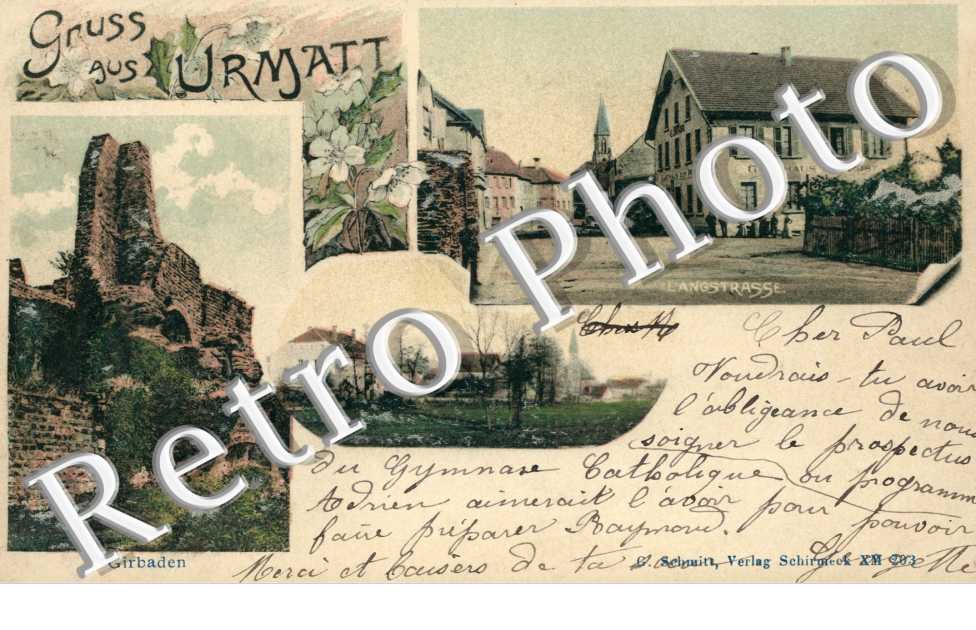 Gruss
aus
URMATT
LANGSTRASSE.
Retro Photo
Cher Paul
Voudrais-tu avoir
l'obligeance de nous
soigner le prospectus
du Gymnase Catholique ou programme
Adrien aimerait l'avoir pour pouvoir
faire préparer Raymond.
Merci et baisers de ta
Girbaden
C. Schmitt, Verlag Schirmeck XM 203